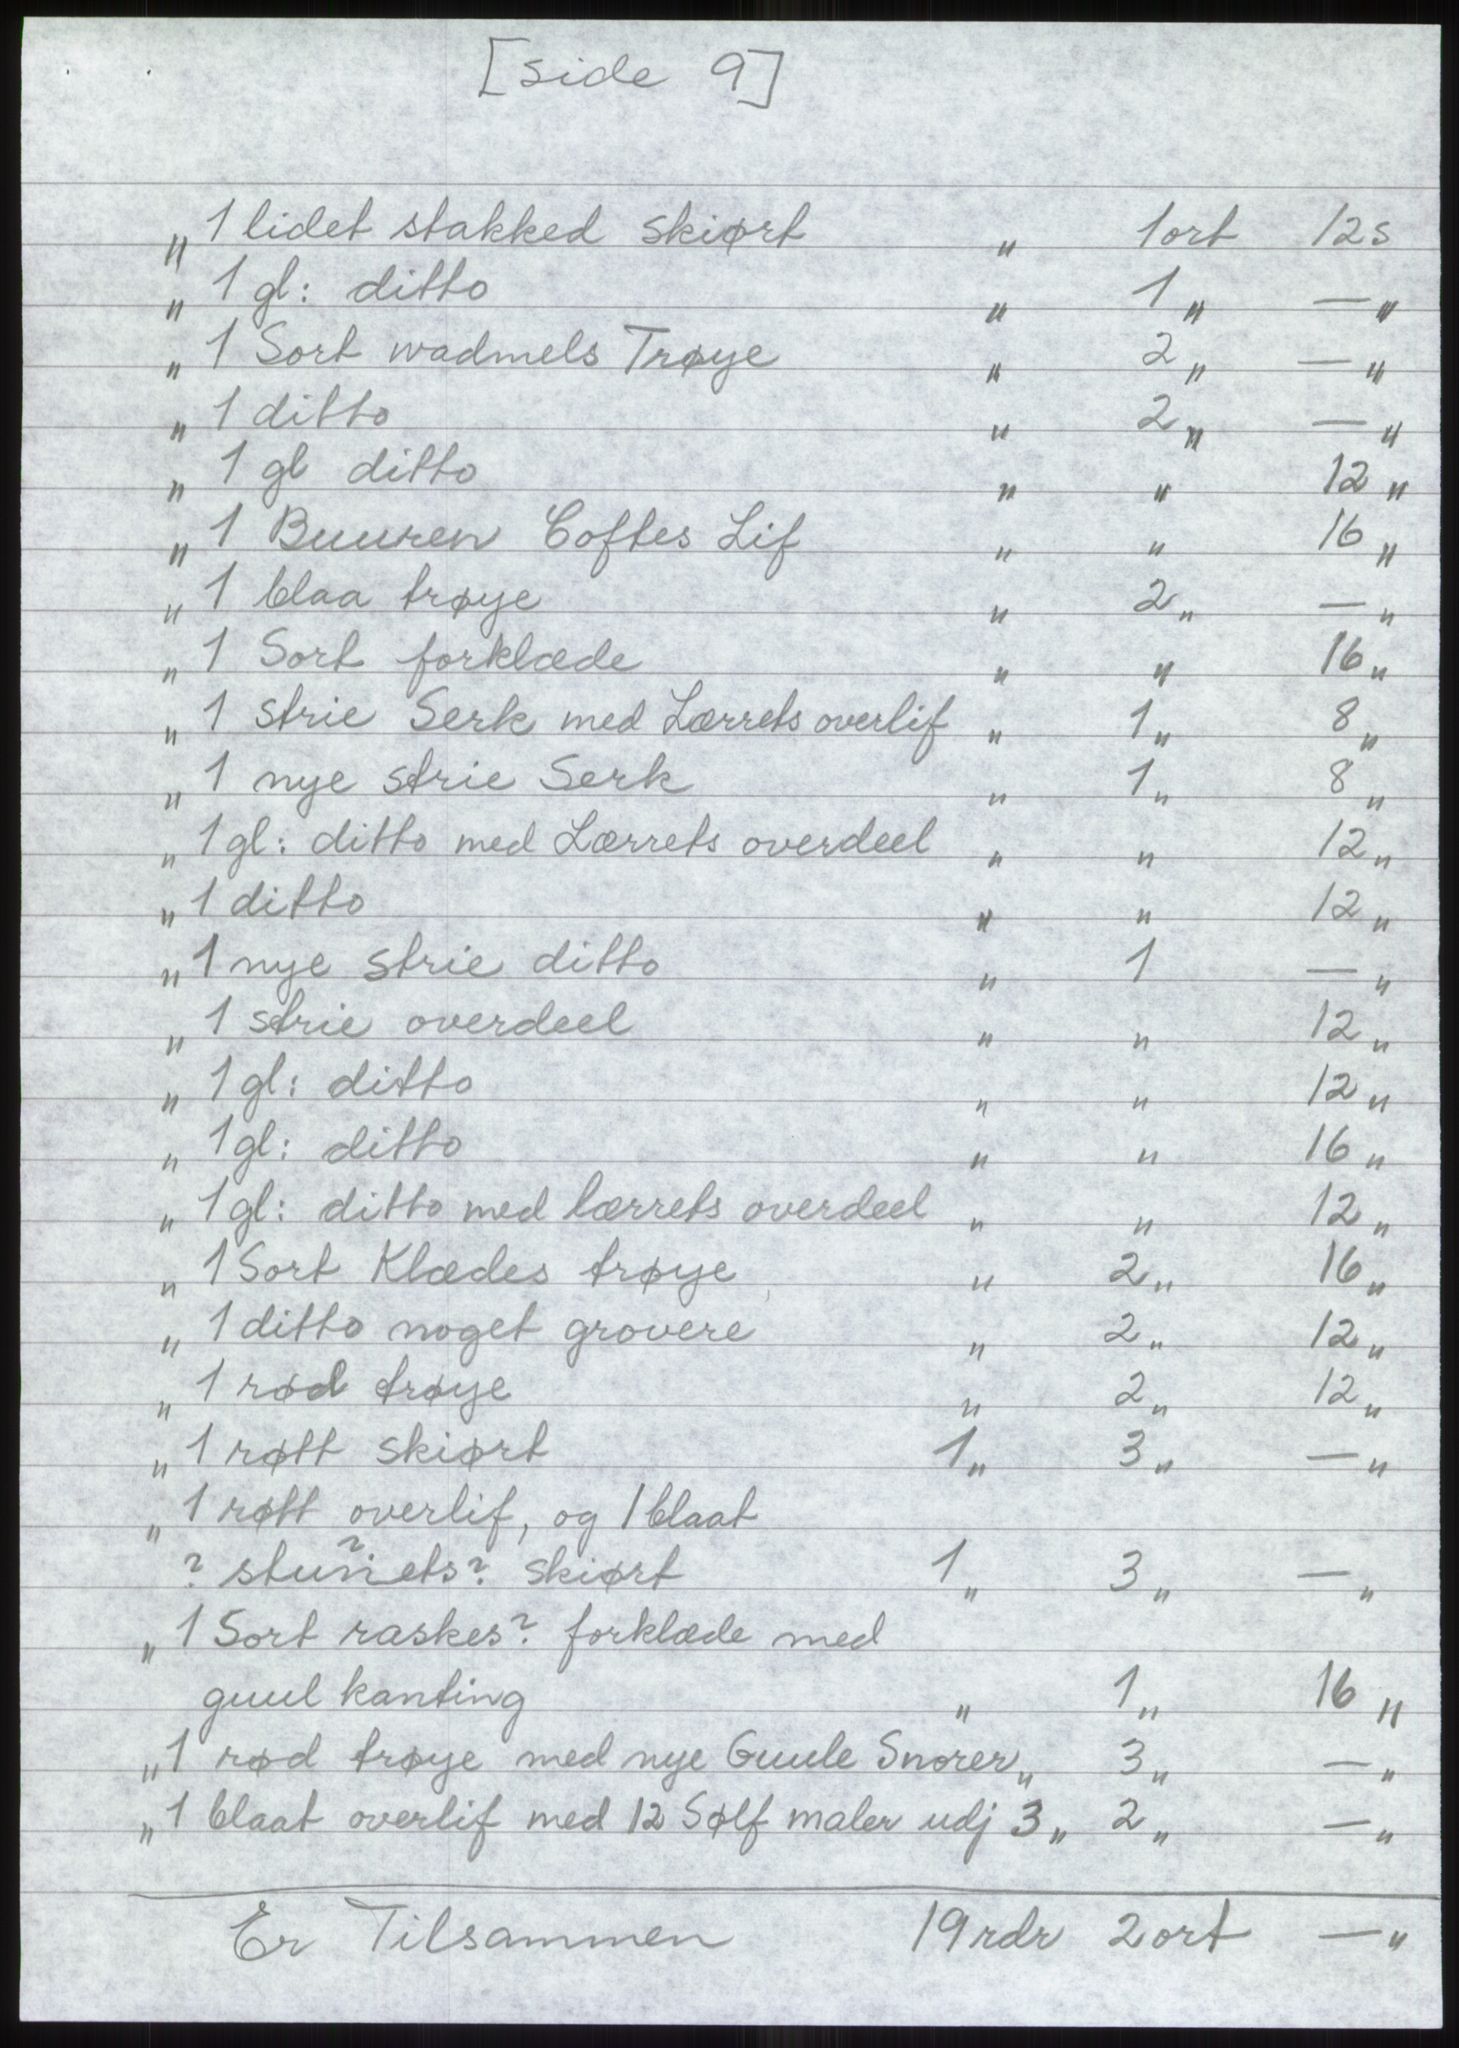 [side 9]
" 1 lidet stakked skiørt " 1 ort 12 s
" 1 gl: ditto " 1 " — "
" 1 Sort wadmels Trøye " 2 " — "
" 1 ditto " 2 " — "
" 1 gl ditto " " 12 "
" 1 Buuren Coftes Lif " " 16 "
" 1 blaa trøye " 2 " — "
" 1 Sort forklæde " " 16 "
" 1 strie Serk med Lærrets overlif " 1 " 8 "
" 1 nye strie Serk " 1 " 8 "
" 1 gl: ditto med Lærrets overdeel " " 12 "
" 1 ditto " " 12 "
" 1 nye strie ditto " 1 — "
" 1 strie overdeel " " 12 "
" 1 gl: ditto " " 12 "
" 1 gl: ditto " " 16 "
" 1 gl: ditto med lærrets overdeel " " 12 "
" 1 Sort Klædes trøye " 2 " 16 "
" 1 ditto noget grovere " 2 " 12 "
" 1 rød trøye " 2 " 12 "
" 1 røtt skiørt 1 " 3 " — "
" 1 røtt overlif, og 1 blaat
? stuñets? skiørt 1 " 3 " — "
" 1 Sort raskes? forklæde med
guul kanting " 1 " 16 "
" 1 rød trøye med nye Guule Snorer " 3 " — "
" 1 blaat overlif med 12 Sølf maler udj 3 " 2 " — "
Er Tilsammen 19 rdr 2 ort — "